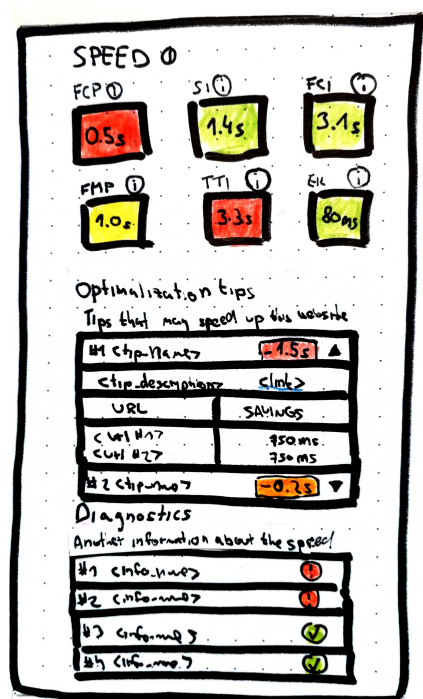 SPEED ⓘ
FCP ⓘ SI ⓘ FCI ⓘ
0.5s 1.4s 3.1s
FMP ⓘ TTI ⓘ EIL ⓘ
1.0s 3.3s 80ms
Optimalization tips
Tips that may speed up this website
#1 <tip_name> -1.5s ▲
<tip_description> <link>
URL SAVINGS
<url #1> 750 ms
<url #2> 750 ms
#2 <tip_name> -0.2s ▼
Diagnostics
Another information about the speed
#1 <info_name> !
#2 <info_name> !
#3 <info_name> ✓
#4 <info_name> ✓